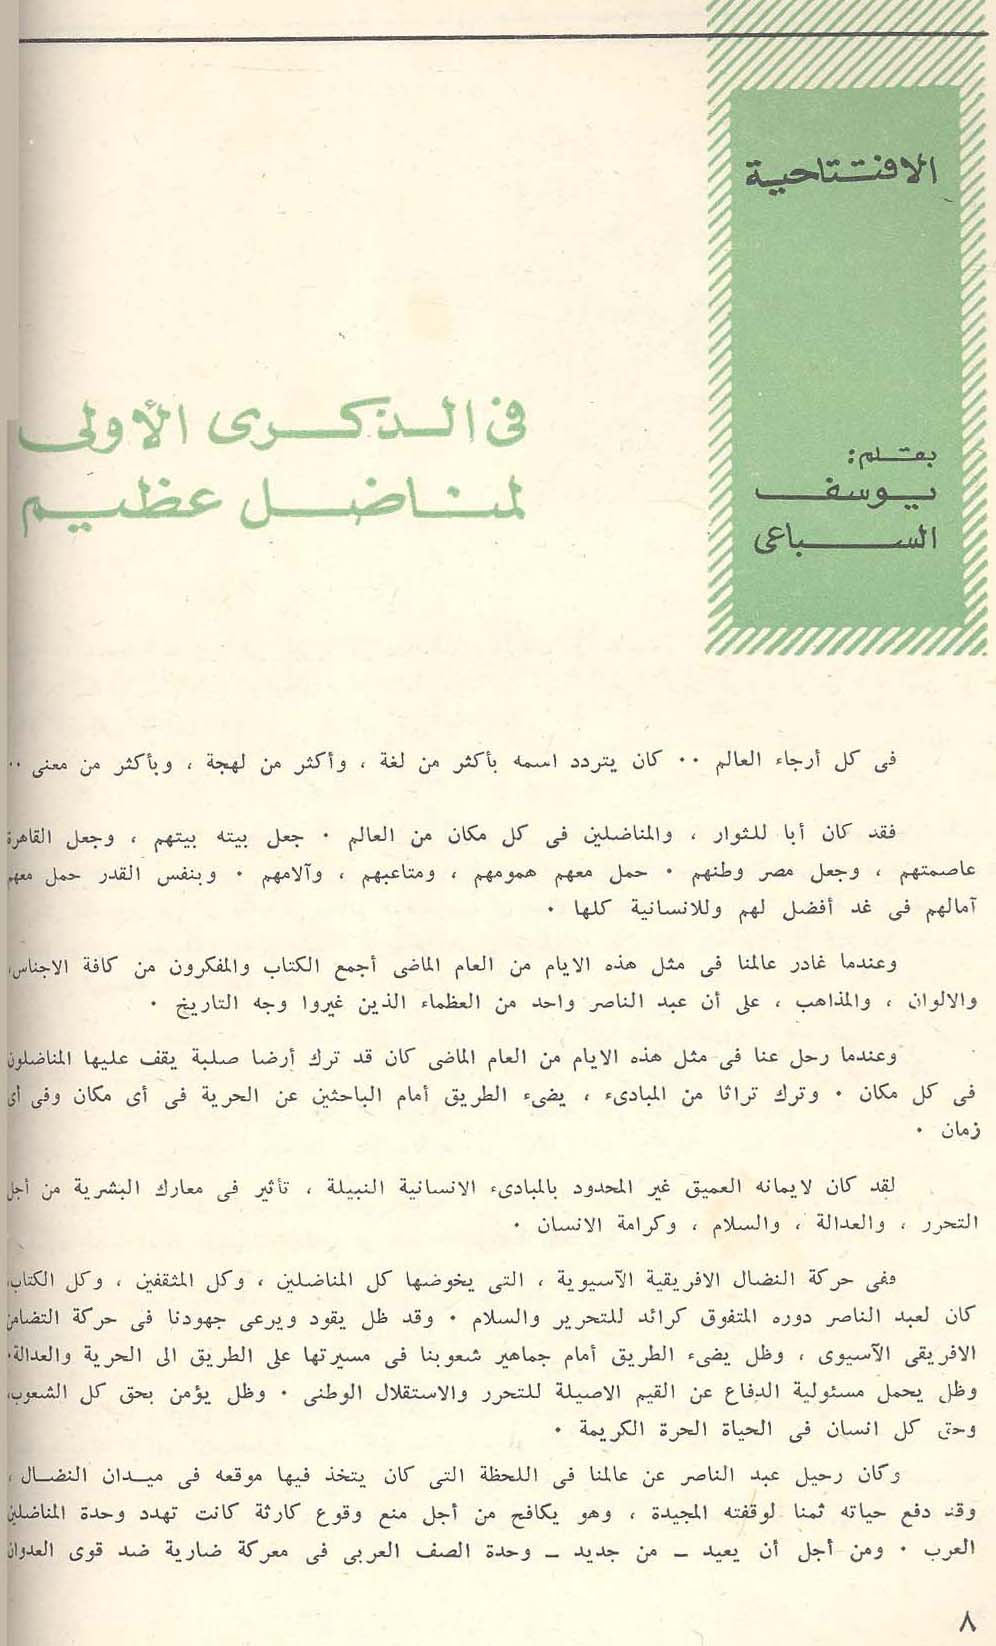 الافتتاحية
بقلم:
يوسف
السباعى
فى الذكرى الأولى
لمناضل عظيم
فى كل أرجاء العالم ٠٠ كان يتردد اسمه بأكثر من لغة ، وأكثر من لهجة ، وبأكثر من معنى ٠٠
فقد كان أبا للثوار ، والمناضلين فى كل مكان من العالم ٠ جعل بيته بيتهم ، وجعل القاهرة
عاصمتهم ، وجعل مصر وطنهم ٠ حمل معهم همومهم ، ومتاعبهم ، وآلامهم ٠ وبنفس القدر حمل معهم
آمالهم فى غد أفضل لهم وللانسانية كلها ٠
وعندما غادر عالمنا فى مثل هذه الايام من العام الماضى أجمع الكتاب والمفكرون من كافة الاجناس،
والالوان ، والمذاهب ، على أن عبد الناصر واحد من العظماء الذين غيروا وجه التاريخ ٠
وعندما رحل عنا فى مثل هذه الايام من العام الماضى كان قد ترك أرضا صلبة يقف عليها المناضلون
فى كل مكان ٠ وترك تراثا من المبادىء ، يضىء الطريق أمام الباحثين عن الحرية فى أى مكان وفى أى
زمان ٠
لقد كان لايمانه العميق غير المحدود بالمبادىء الانسانية النبيلة ، تأثير فى معارك البشرية من أجل
التحرر ، والعدالة ، والسلام ، وكرامة الانسان ٠
ففى حركة النضال الافريقية الآسيوية ، التى يخوضها كل المناضلين ، وكل المثقفين ، وكل الكتاب،
كان لعبد الناصر دوره المتفوق كرائد للتحرير والسلام ٠ وقد ظل يقود ويرعى جهودنا فى حركة التضامن
الافريقى الآسيوى ، وظل يضىء الطريق أمام جماهير شعوبنا فى مسيرتها على الطريق الى الحرية والعدالة٠
وظل يحمل مسئولية الدفاع عن القيم الاصيلة للتحرر والاستقلال الوطنى ٠ وظل يؤمن بحق كل الشعوب،
وحق كل انسان فى الحياة الحرة الكريمة ٠
وكان رحيل عبد الناصر عن عالمنا فى اللحظة التى كان يتخذ فيها موقعه فى ميدان النضال ،
وقد دفع حياته ثمنا لوقفته المجيدة ، وهو يكافح من أجل منع وقوع كارثة كانت تهدد وحدة المناضلين
العرب ٠ ومن أجل أن يعيد – من جديد – وحدة الصف العربى فى معركة ضارية ضد قوى العدوان
٨